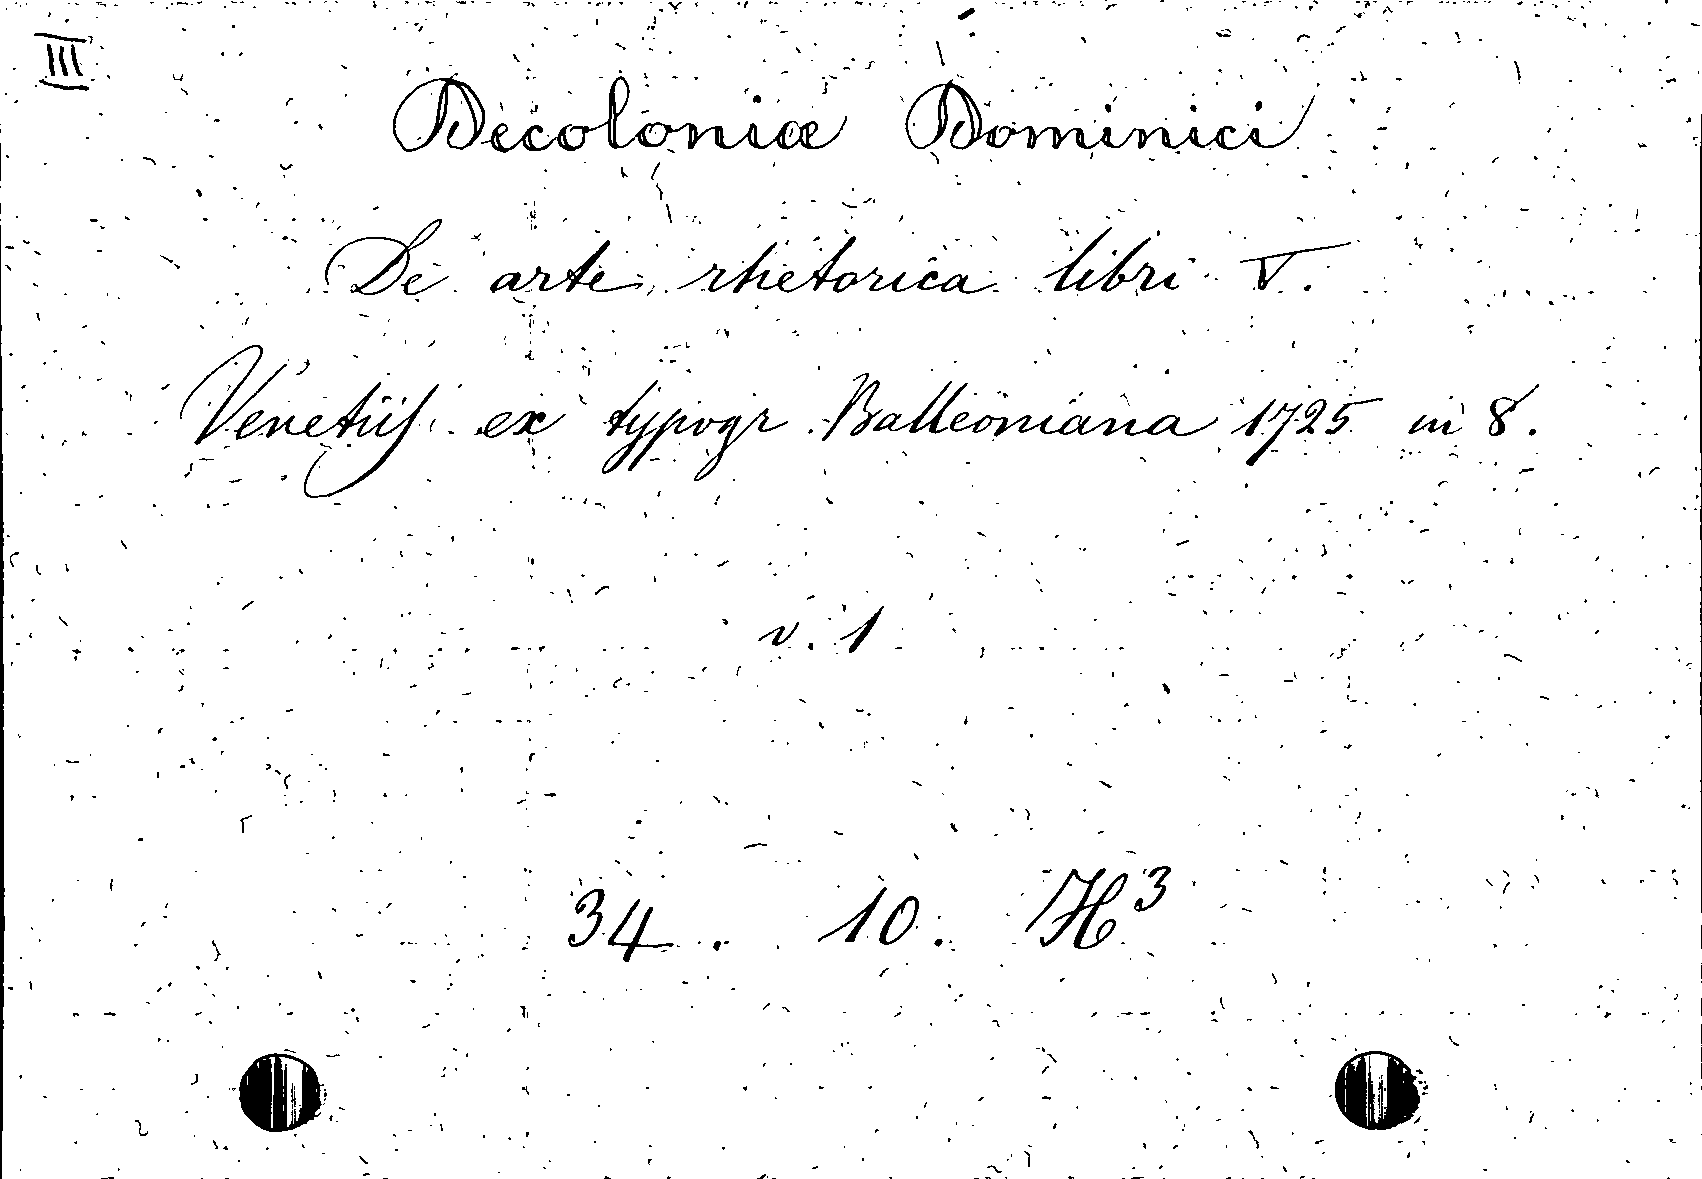 III
Decoloniæ Dominici
De arte rhetorica libri V.
Venetiis ex typogr Balleoniana 1725 in 8.
v. 1
34. 10. H³